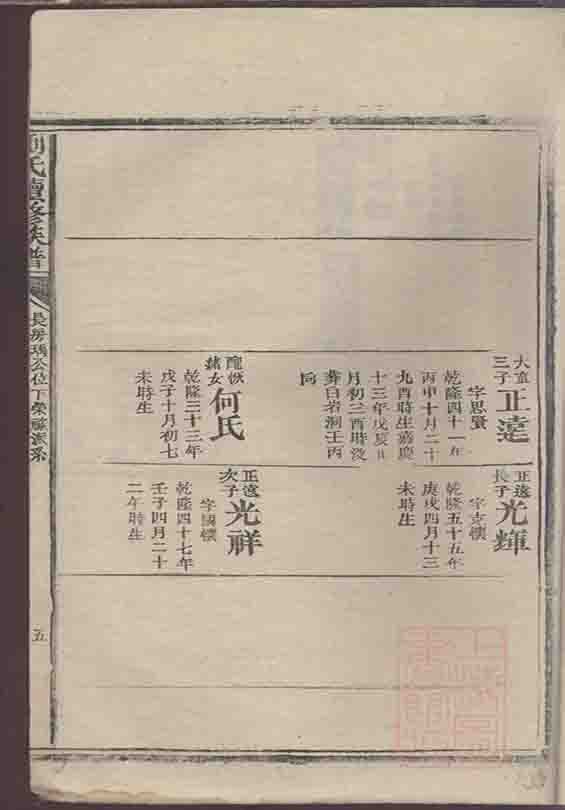 大童
三子
正遠
字思賢
乾隆四十一年
丙申十月二十
九酉時生嘉慶
十三年戊辰
月初三酉時沒
葬白岩洞壬丙
向
何氏
乾隆三十三年
戊子十月初七
未時生
正遠
長子
光輝
字克懷
乾隆五十五年
庚戌四月十三
未時生
正遠
次子
光祥
字國懷
乾隆四十七年
壬子四月二十
二午時生
劉氏續修族譜
長房瑀公位下榮派系
五